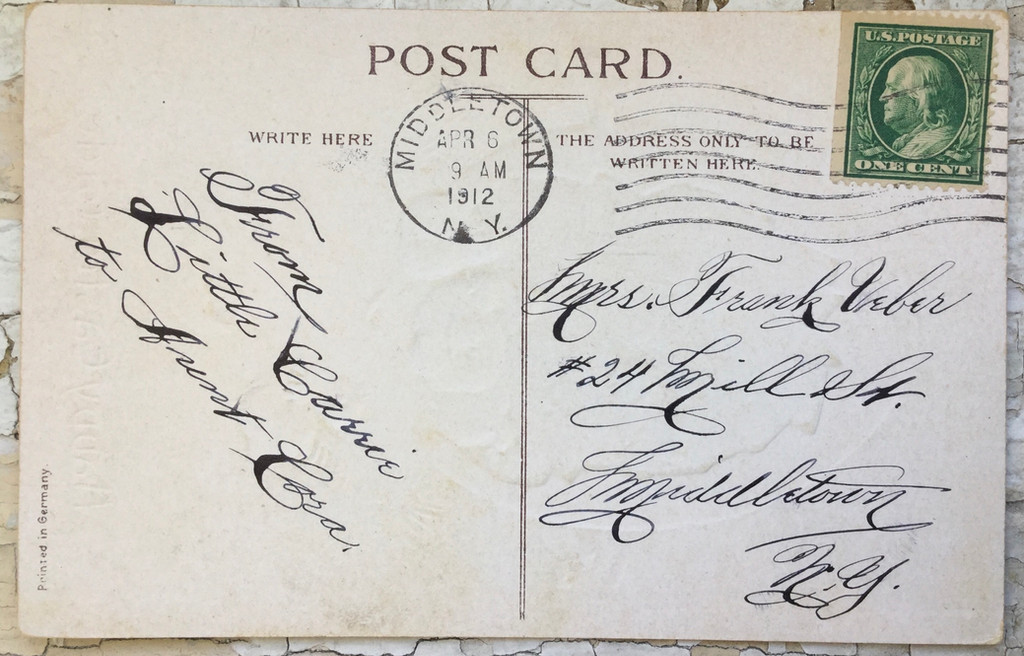 POST CARD.
WRITE HERE
THE ADDRESS ONLY TO BE
WRITTEN HERE.
MIDDLETOWN
APR 6
9 AM
1912
N.Y.
U.S. POSTAGE
ONE CENT
From
Little Carrie
to Aunt Cora.
Mrs. Frank Veber
#24 Mill St.
Middletown
N.Y.
Printed in Germany.